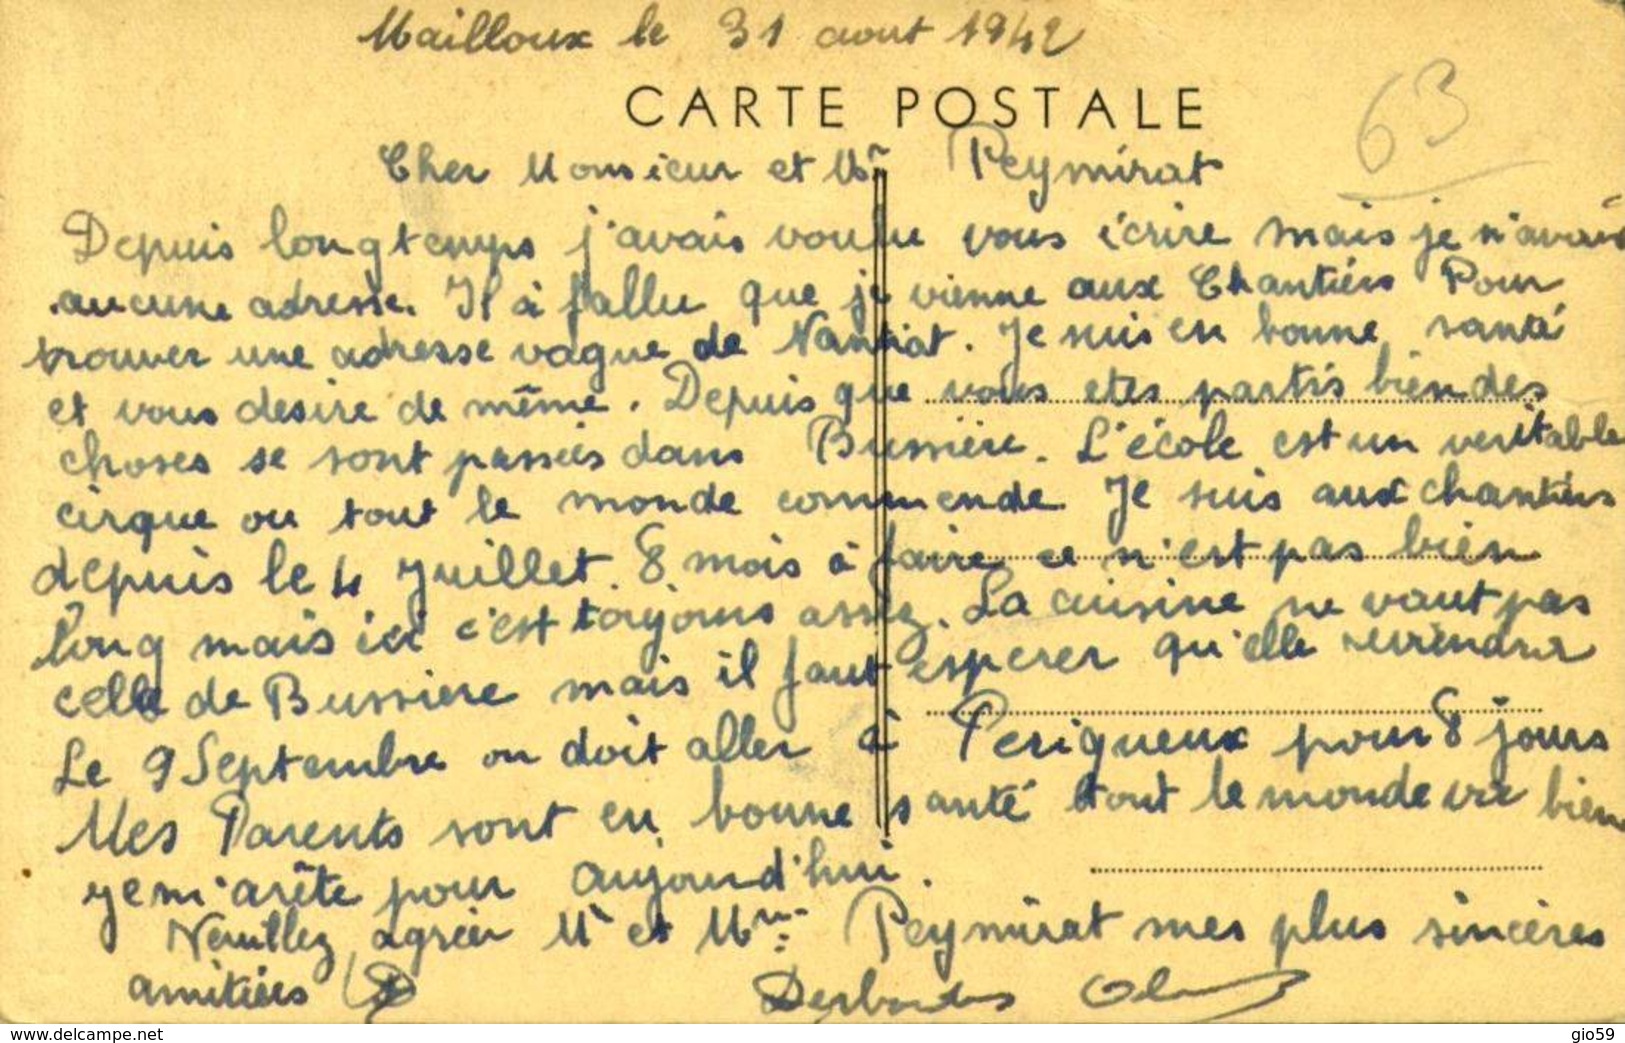 Mailloux le 31 aout 1942
CARTE POSTALE
63
Cher Monsieur et Mme Peymirat
Depuis longtemps j'avais voulu vous écrire mais je n'avais
aucune adresse. Il à fallu que je vienne aux Chantiers Pour
trouver une adresse vague de Nantiat. Je suis en bonne santé
et vous desire de même. Depuis que vous etes partis bien des
choses se sont passées dans Bussière. L'école est un veritable
cirque ou tout le monde commende. Je suis aux chantiers
depuis le 4 Juillet. 8 mois à faire ce n'est pas bien
long mais ici c'est toujours assez. La cuisine ne vaut pas
celle de Bussiere mais il faut esperer qu'elle reviendra
Le 9 Septembre on doit aller à Perigueux pour 8 jours
Mes Parents sont en bonne santé tout le monde va bien
je m'arête pour aujourd'hui.
Veuillez agréer Mr et Mme Peymirat mes plus sincères
amitiés Desbordes
www.delcampe.net
gio59